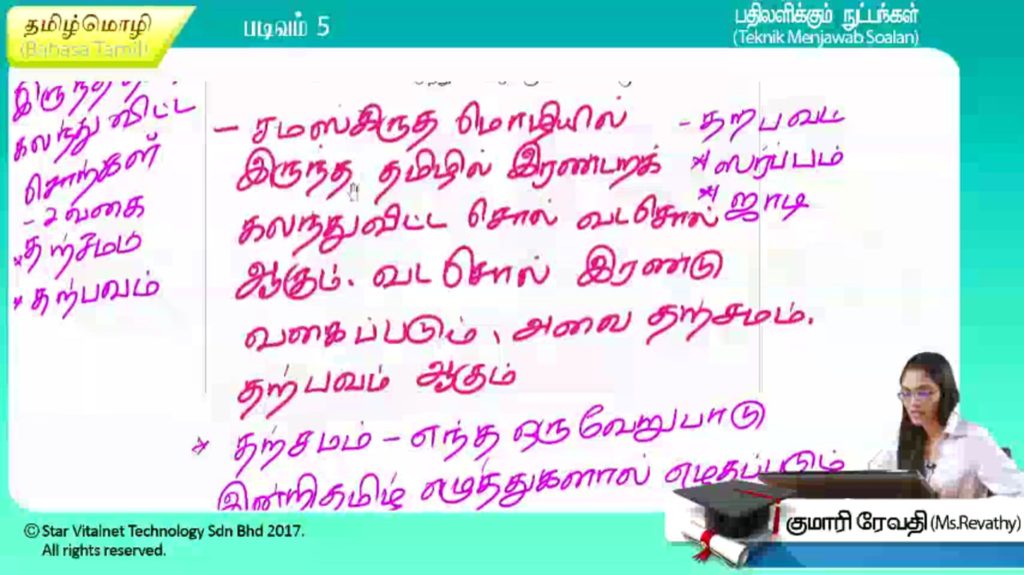 தமிழ்மொழி
(Bahasa Tamil)
படிவம் 5
பதிலளிக்கும் நுட்பங்கள்
(Teknik Menjawab Soalan)
கலந்து விட்ட
சொற்கள்
- 2 வகை
* தற்சமம்
* தற்பவம்
- சமஸ்கிருத மொழியில்
இருந்து தமிழில் இரண்டறக்
கலந்துவிட்ட சொல் வடசொல்
ஆகும். வட சொல் இரண்டு
வகைப்படும், அவை தற்சமம்.
தற்பவம் ஆகும்
* தற்சமம் - எந்த ஒரு வேறுபாடு
இன்றி தமிழ் எழுத்துகளால் எழுதப்படும்
- தற்பவட்
* ஸர்ப்பம்
* ஜாடி
குமாரி ரேவதி (Ms.Revathy)
© Star Vitalnet Technology Sdn Bhd 2017.
All rights reserved.